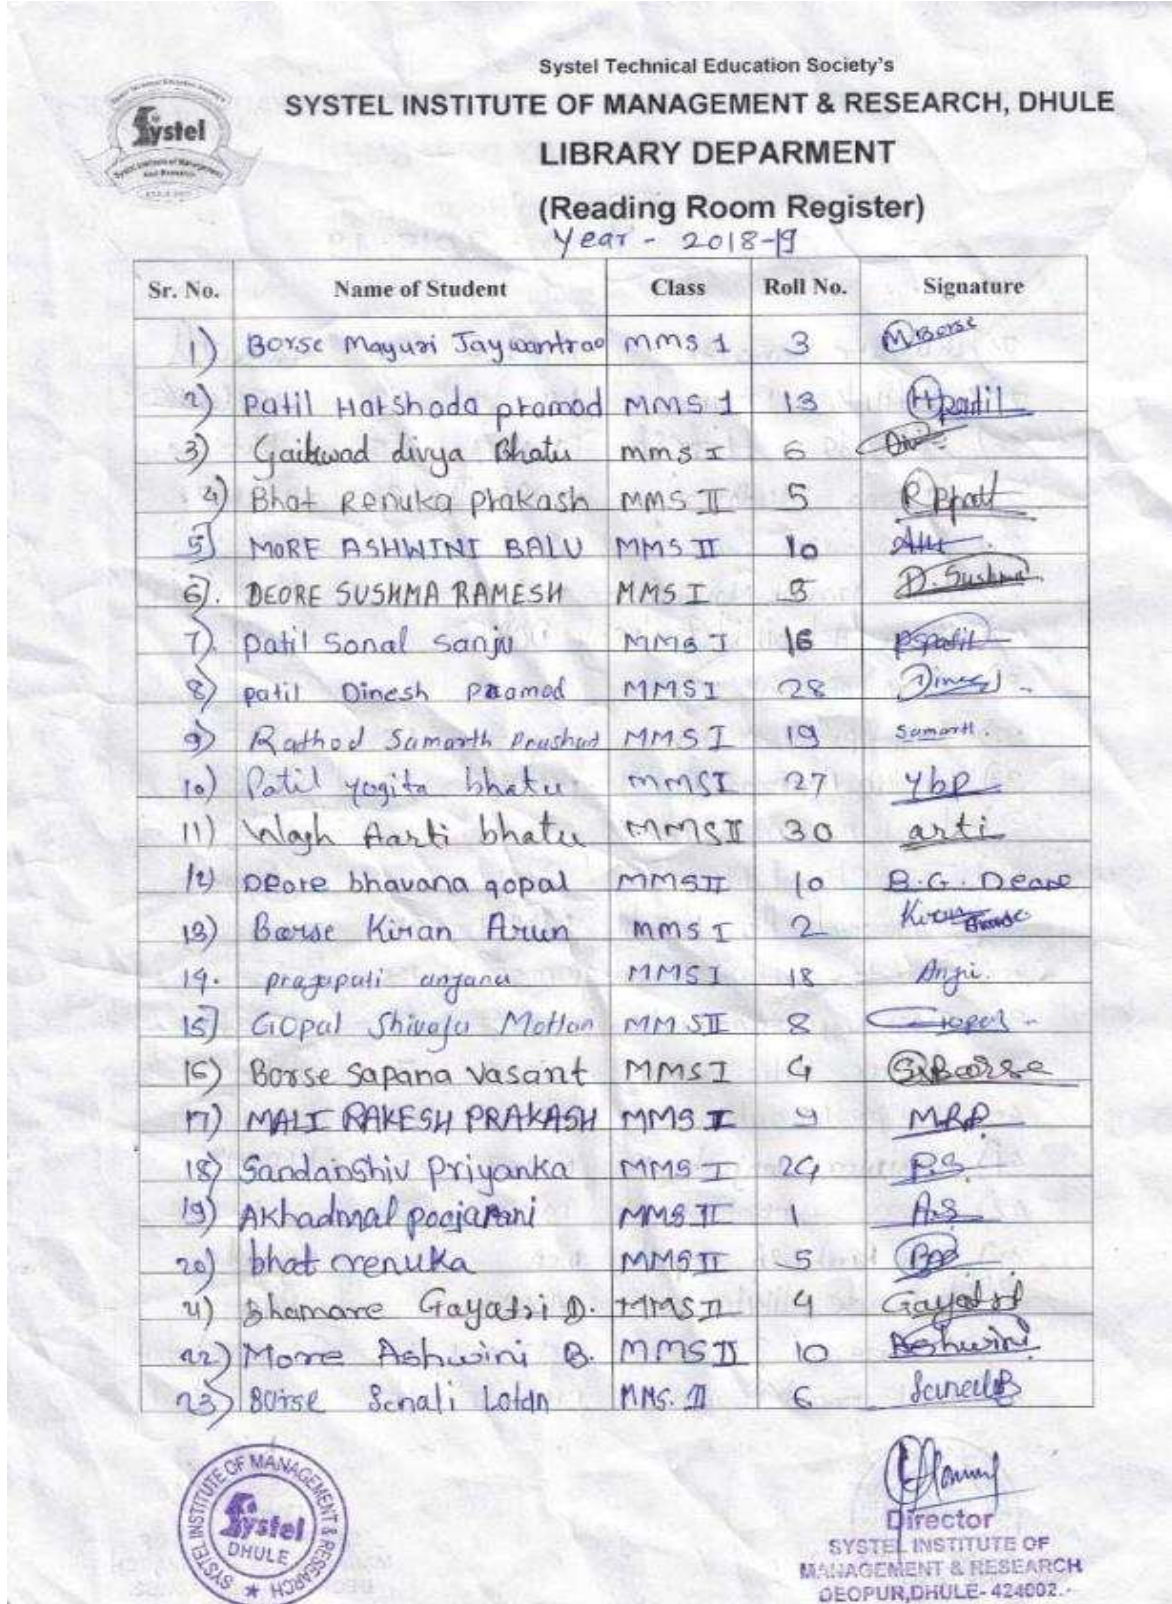 Systel Technical Education Society's
SYSTEL INSTITUTE OF MANAGEMENT & RESEARCH, DHULE
Systel
LIBRARY DEPARMENT
(Reading Room Register)
Year - 2018-19
Sr. No. Name of Student Class Roll No. Signature
1) Borse Mayuri Jaywantrao MMS 1 3 MBorse
2) Patil Harshada pramod MMS 1 13 Hpatil
3) Gaikwad divya Bhatu MMS I 6
4) Bhat Renuka Prakash MMS II 5 RBhatt
5] MORE ASHWINI BALU MMS II 10
6). DEORE SUSHMA RAMESH MMS I 5 D. Sushma
7). patil Sonal Sanju MMS I 16 PSpatil
8) patil Dinesh Pramod MMS I 28 Dinesh
9) Rathod Samarth Prushant MMS I 19 Samarth.
10) Patil yogita bhatu MMSI 27 ybp
11) Wagh Aarti bhatu MMSII 30 arti
12) Deore bhavana gopal MMSII 10 B.G. Deore
13) Borse Kiran Arun MMS I 2 Kiran
14. prajapati anjana MMSI 18 Anju.
15] Gopal Shivaju MMSII 8 Gopal
16) Borse Sapana Vasant MMSI 4 SBorse
17) MALI RAKESH PRAKASH MMS I 9 MRP
18) Sandanshiv Priyanka MMS I 24 P.S.
19) Akhadmal poojarani MMS II 1 A.S
20) bhat renuka MMSII 5
21) Bhamare Gayatri D. MMSII 4 Gayatri
22) More Ashwini B. MMSII 10 Ashwini
23) Borse Sonali Lotan MMS. II 6 SonaliB
SYSTEL INSTITUTE OF MANAGEMENT & RESEARCH
Systel
DHULE
Director
SYSTEL INSTITUTE OF
MANAGEMENT & RESEARCH
DEOPUR,DHULE-424002.